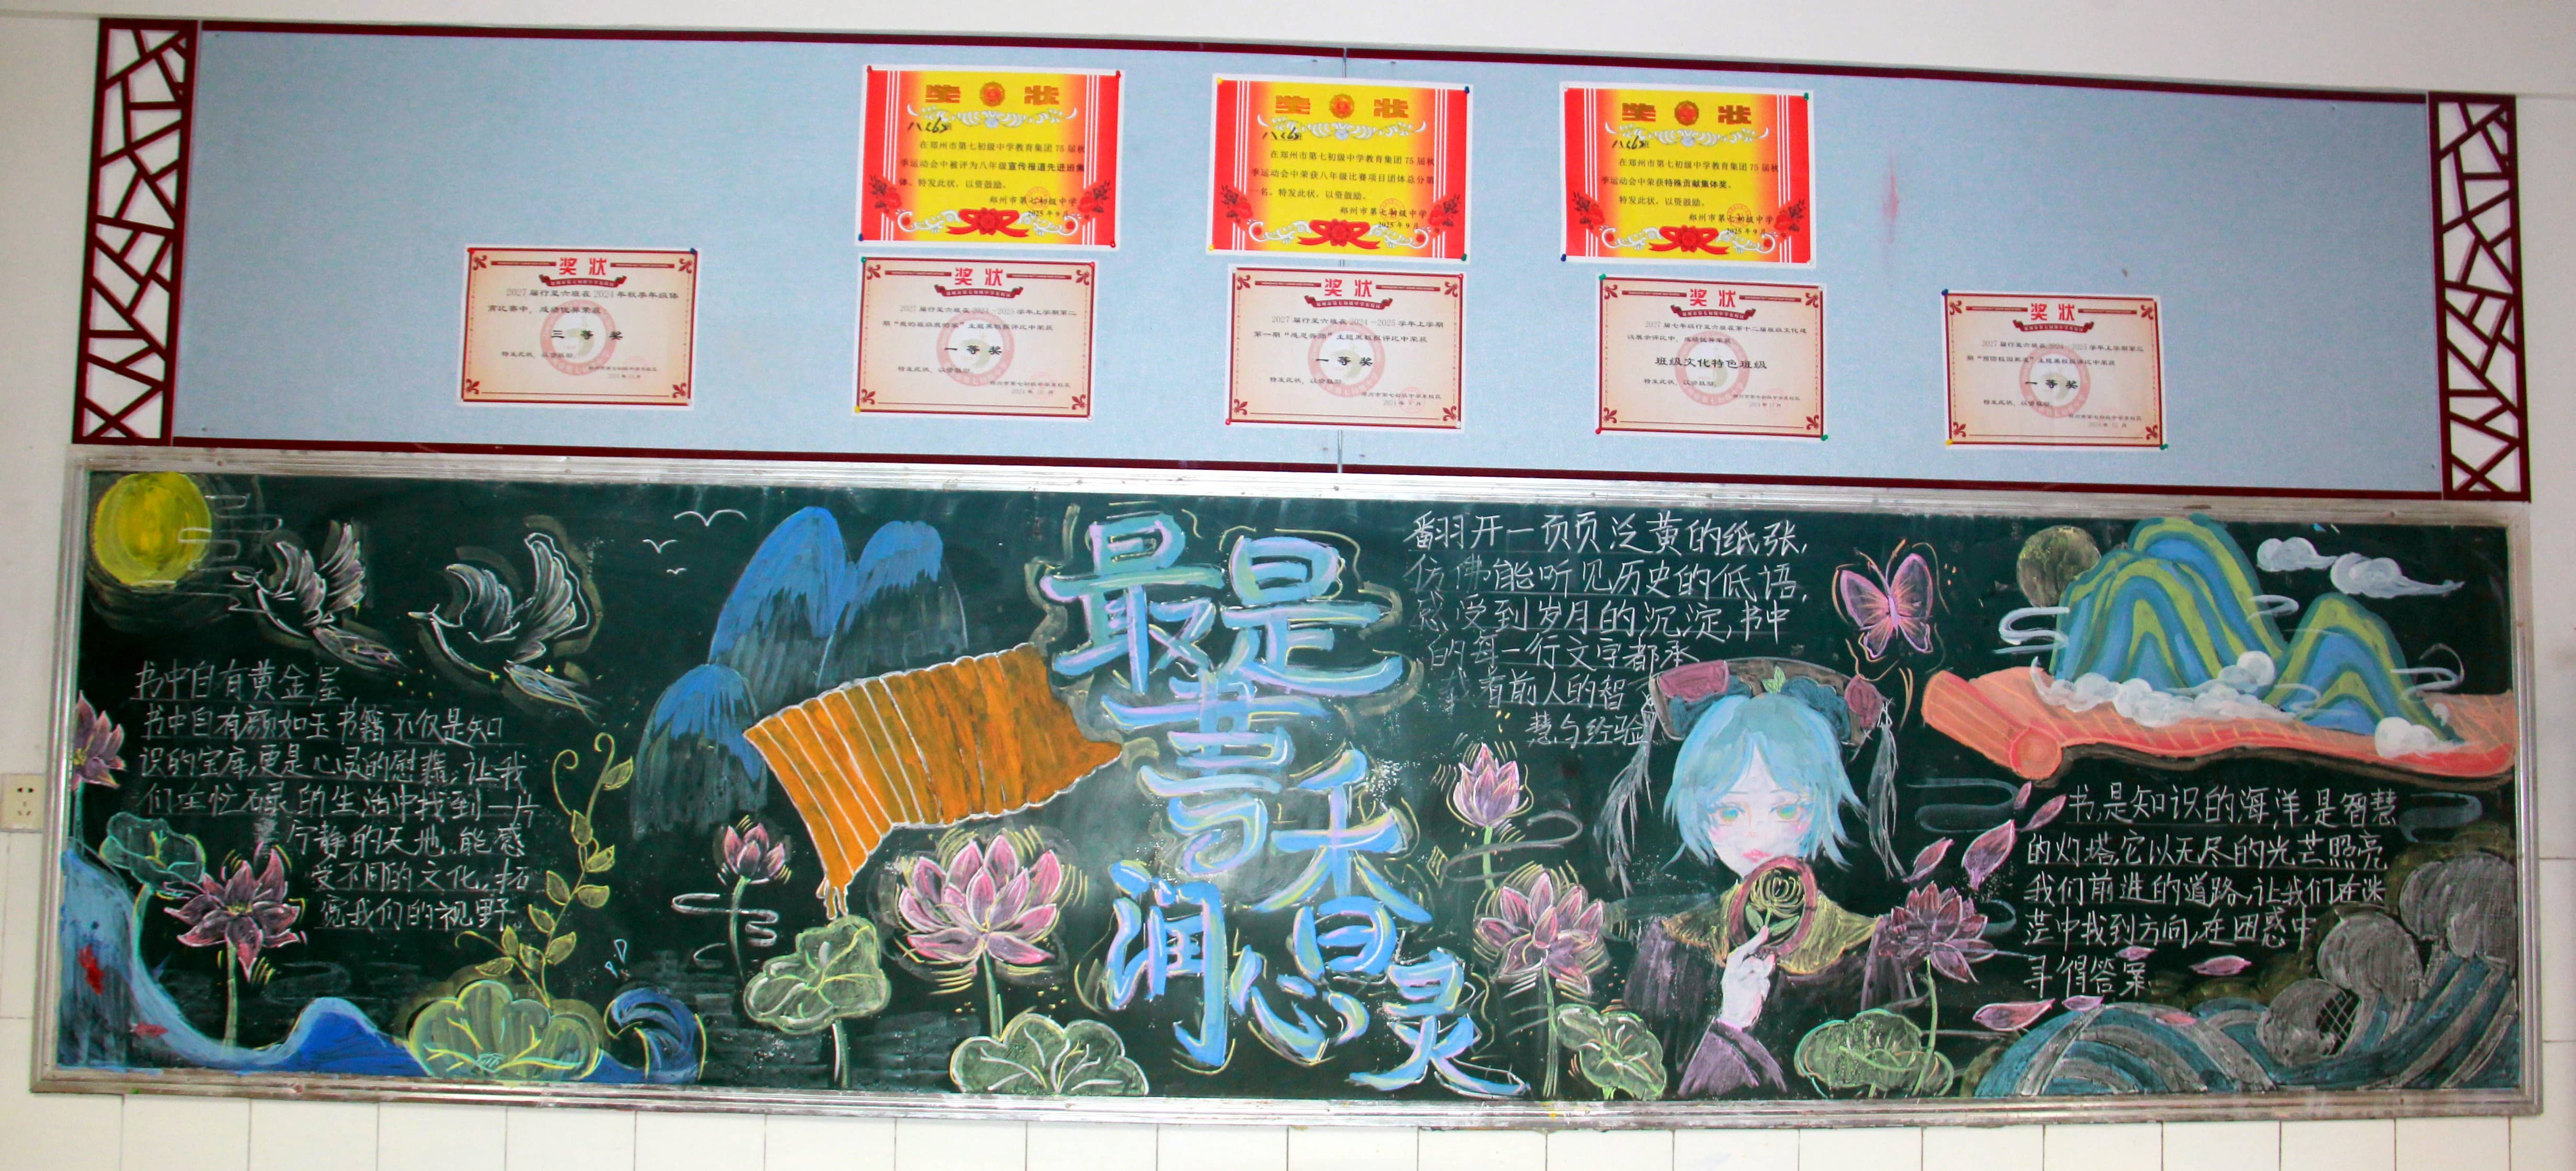 奖状
八(6)班
在郑州市第七初级中学教育集团75届秋
季运动会中被评为八年级宣传报道先进班集
体。特发此状，以资鼓励。
郑州市第七初级中学
2025年9月
奖状
八(6)班
在郑州市第七初级中学教育集团75届秋
季运动会中荣获八年级比赛项目团体总分第
一名。特发此状，以资鼓励。
郑州市第七初级中学
2025年9月
奖状
八(6)班
在郑州市第七初级中学教育集团75届秋
季运动会中荣获特殊贡献集体奖。
特发此状，以资鼓励。
郑州市第七初级中学
2025年9月
奖状
2027届行至六班在2024年秋季年级体
育比赛中，成绩优异荣获
三等奖
特发此状，以资鼓励。
奖状
2027届行至六班在2024-2025学年上学期第二
主题黑板报评比中荣获
一等奖
特发此状，以资鼓励。
奖状
2027届行至六班在2024-2025学年上学期
第一期“感恩老师”主题黑板报评比中荣获
一等奖
特发此状，以资鼓励。
奖状
2027届七年级行至六班在第十二届班级文化建
设展示评比中，成绩优异荣获
班级文化特色班级
特发此状，以资鼓励。
奖状
2027届行至六班在2024-2025学年上学期第三
主题黑板报评比中荣获
一等奖
特发此状，以资鼓励。
书中自有黄金屋
书中自有颜如玉书籍不仅是知
识的宝库,更是心灵的慰藉,让我
们在忙碌的生活中找到一片
宁静的天地,能感
受不同的文化,拓
宽我们的视野。
最是
书香
润心灵
翻开一页页泛黄的纸张,
仿佛能听见历史的低语,
感受到岁月的沉淀,书中
的每一行文字都承
载着前人的智
慧与经验
书,是知识的海洋,是智慧
的灯塔,它以无尽的光芒照亮
我们前进的道路,让我们在迷
茫中找到方向,在困惑中
寻得答案